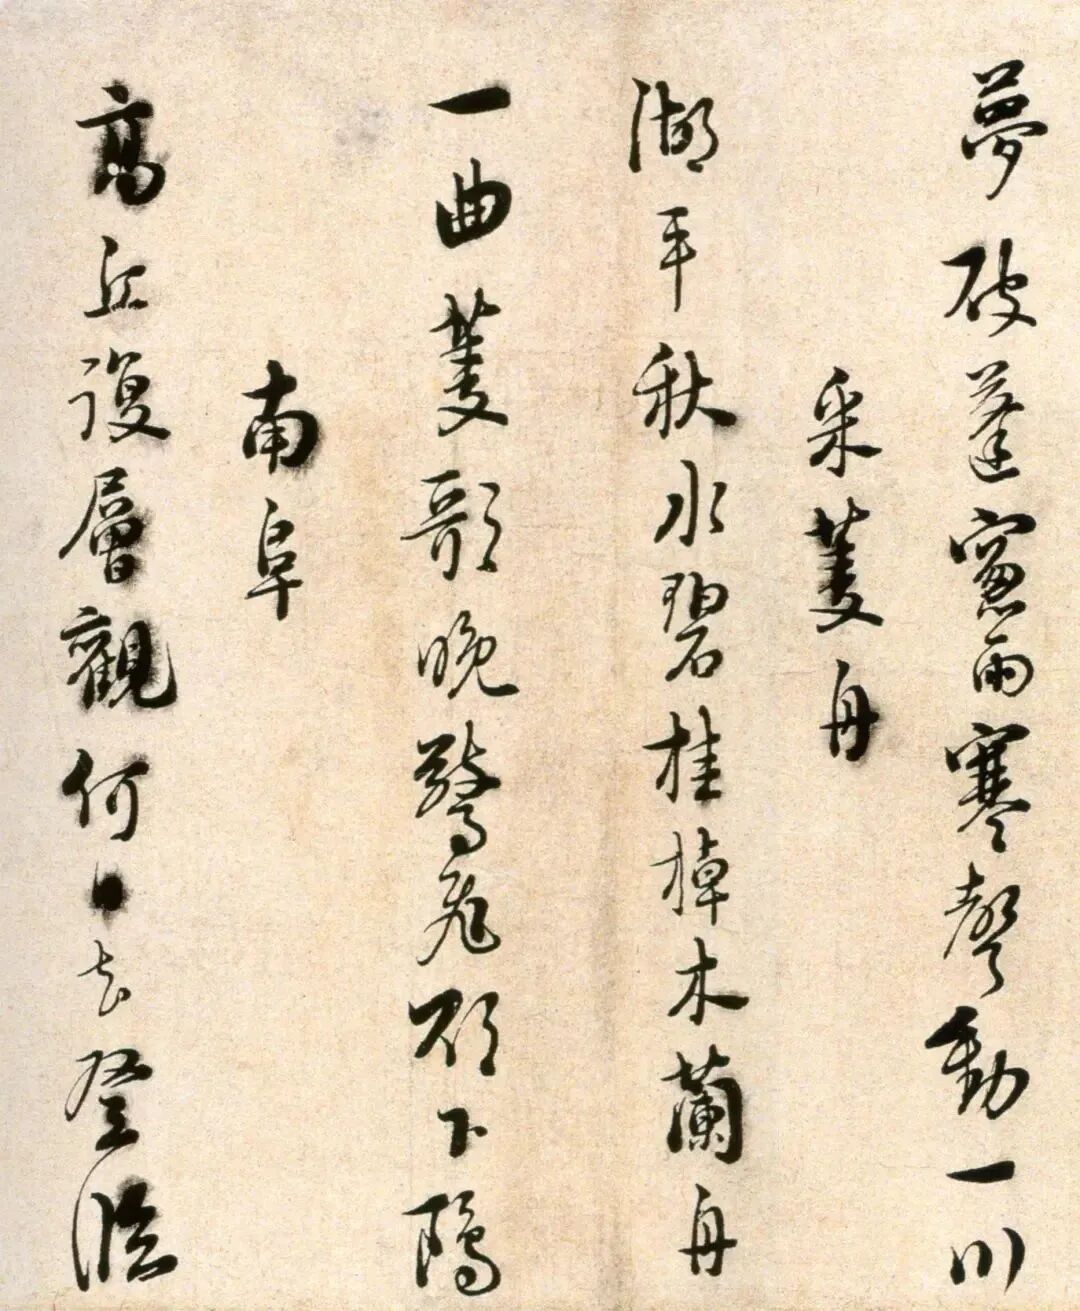 夢破蓬窻雨寒聲動一川
采菱舟
湖平秋水碧桂棹木蘭舟
一曲菱歌晚驚飛欲下鷗
南阜
高丘復層觀何日去登臨